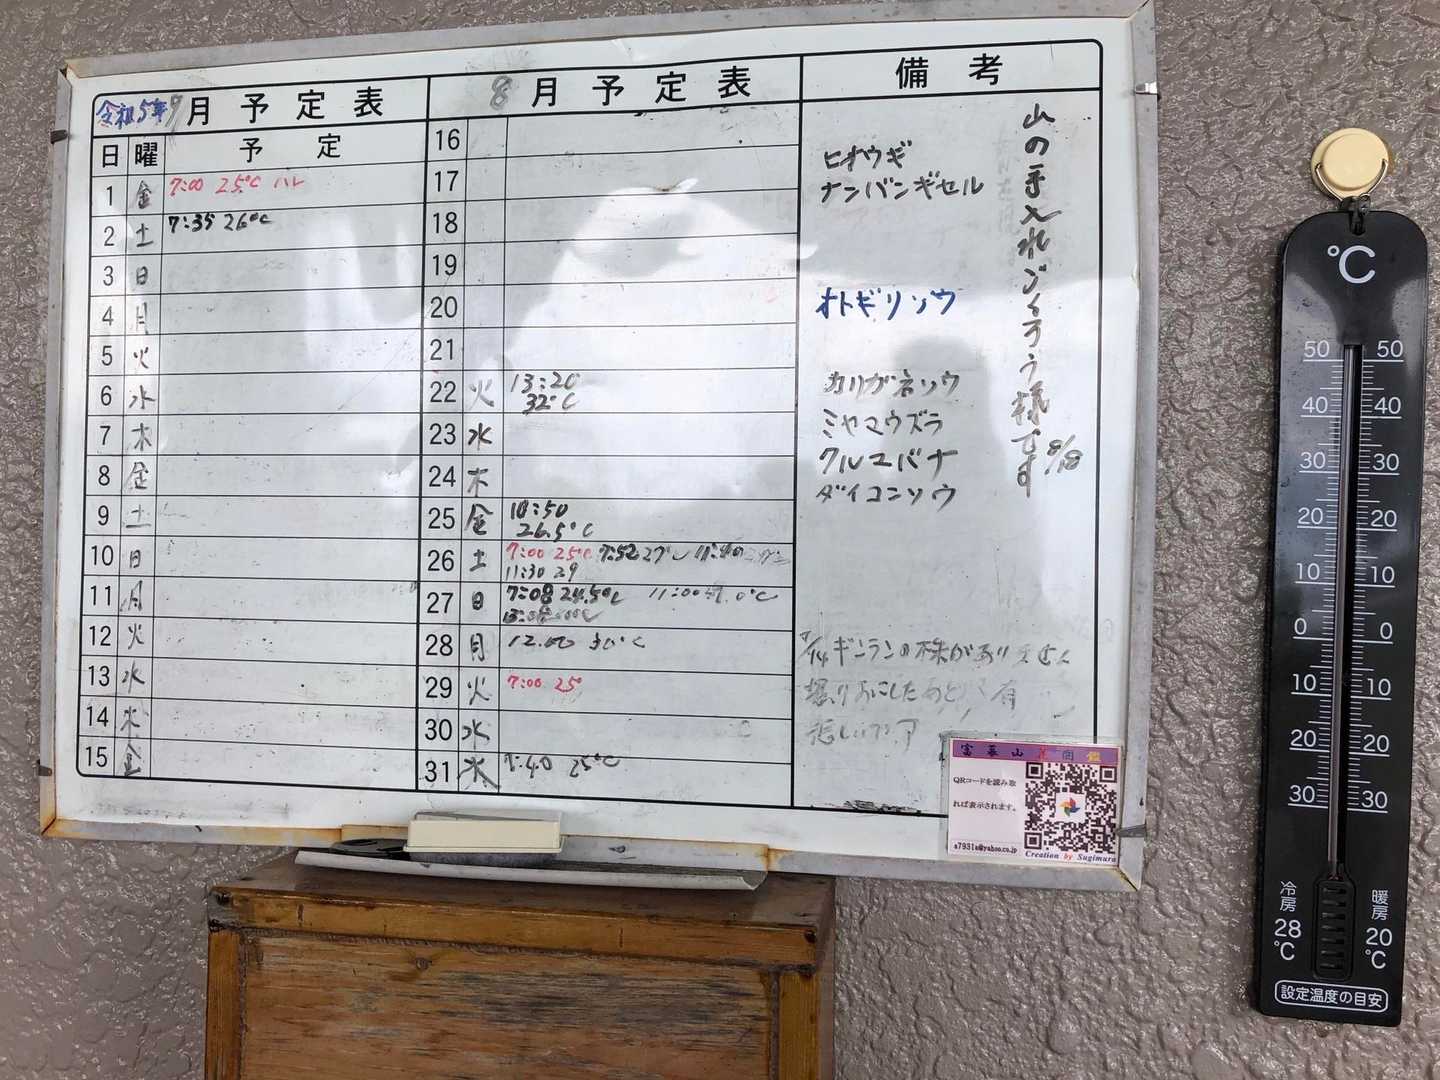 令和5年9月予定表
日 曜 予定
1 金 7:00 25℃ ハレ
2 土 7:35 26℃
3 日
4 月
5 火
6 水
7 木
8 金
9 土
10 日
11 月
12 火
13 水
14 木
15 金
8月予定表
16
17
18
19
20
21
22 火 13:20
32℃
23 水
24 木
25 金 10:50
26.5℃
26 土 7:00 25℃ 7:52 27℃
11:30 29
27 日 7:08 24.5℃ 11:00
28 月 12:00 30℃
29 火 7:00 25
30 水
31 木 7:40 25℃
備考
山の手入れごくろう様です
8/18
ヒオウギ
ナンバンギセル
オトギリソウ
カリガネソウ
ミヤマウズラ
クルマバナ
ダイコンソウ
ギンランの株がありません
掘りおこしたあと 有
悲しい
富幕山花図鑑
QRコードを読み取
れば表示されます。
a7931s@yahoo.co.jp
Creation by Sugimura
℃
50 50
40 40
30 30
20 20
10 10
0 0
10 10
20 20
30 30
冷房 28℃
暖房 20℃
設定温度の目安